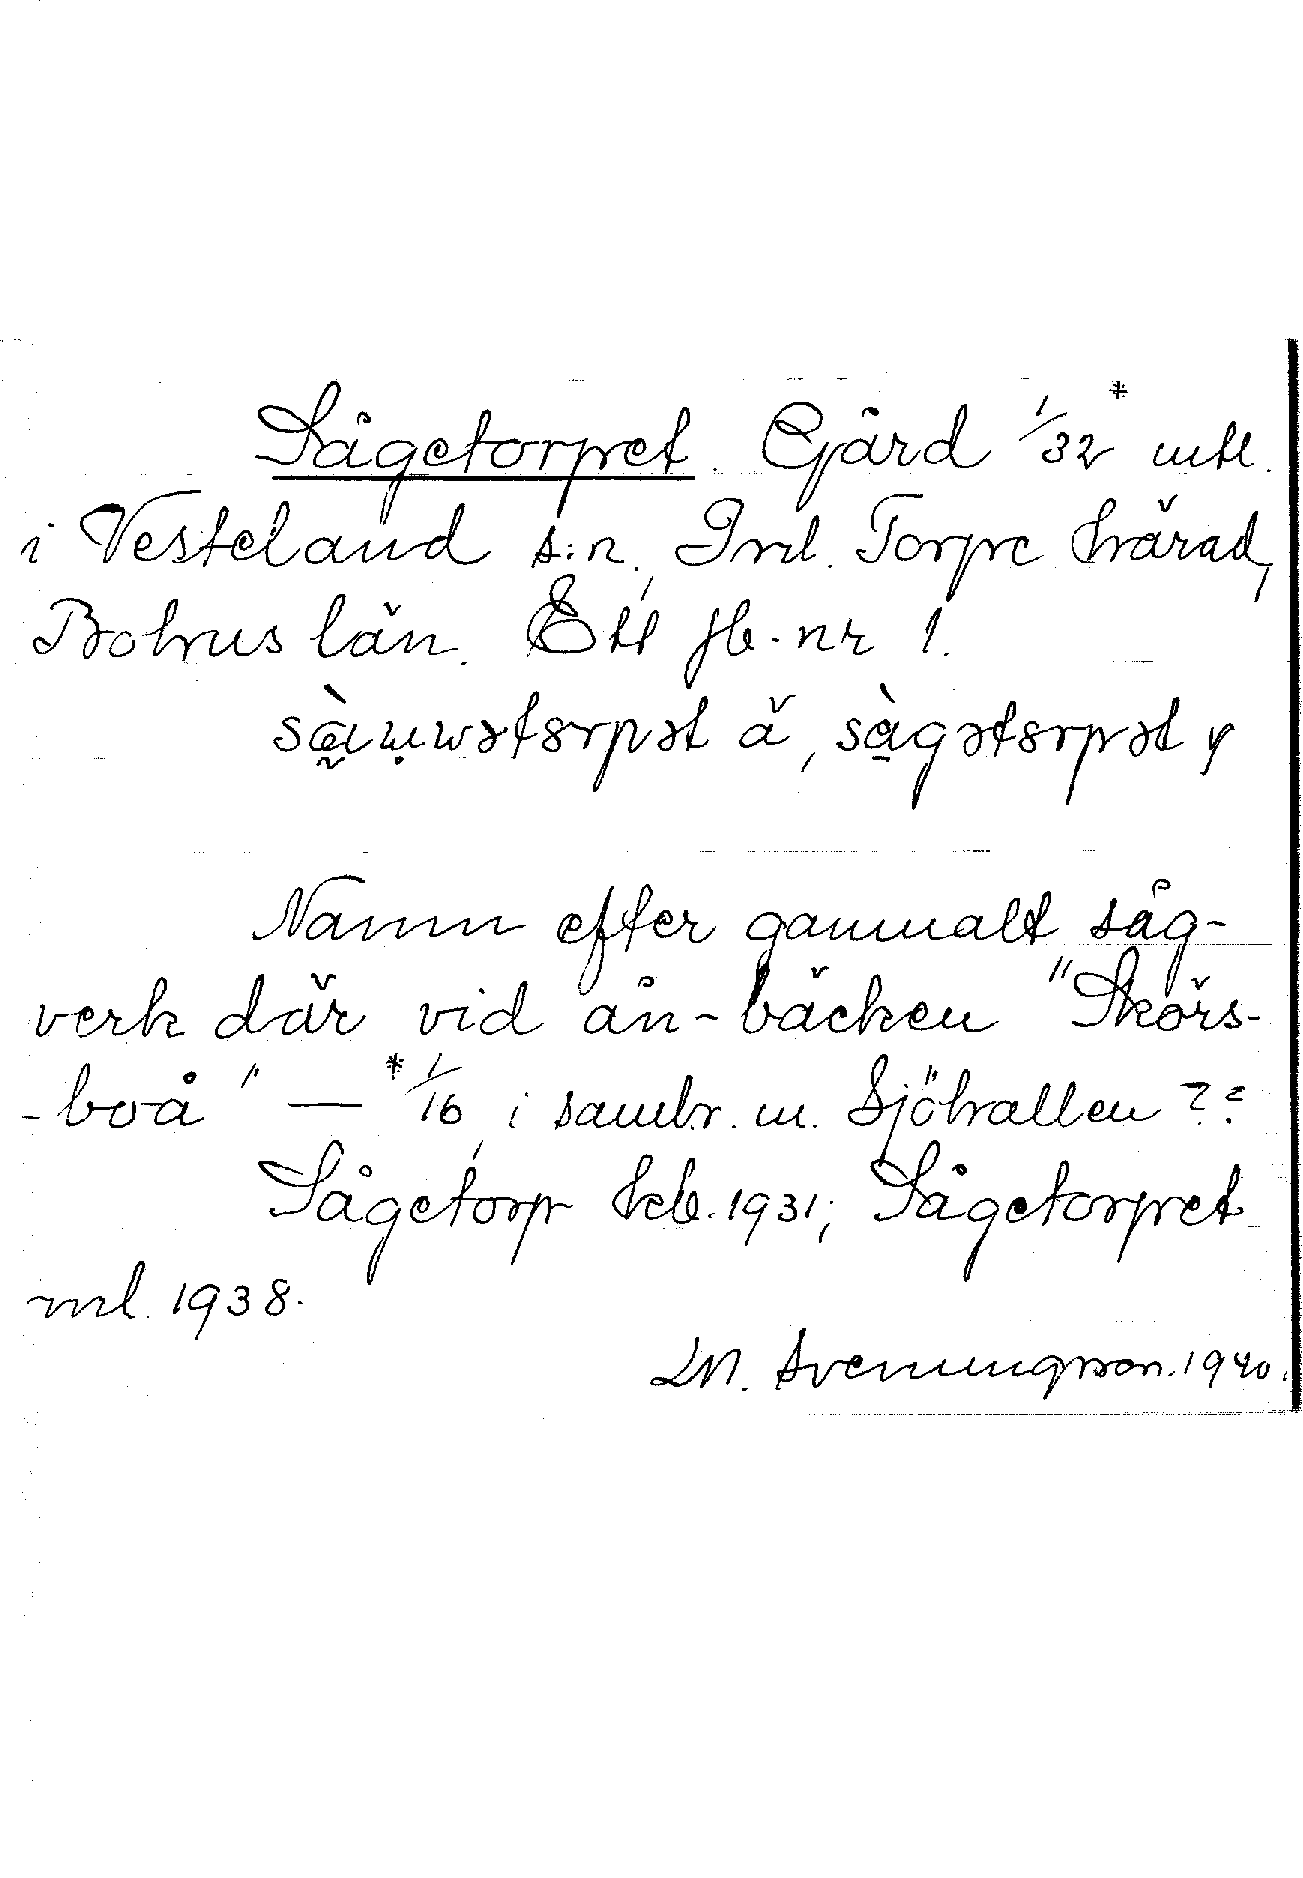 Sågetorpet. Gård 1/32* mtl.
i Vesteland s:n, Inl. Torpe härad,
Bohus län. Ett jb.-nr 1.
ä, y
Namn efter gammalt såg-
verk där vid ån-bäcken "Skörs-
-boå" — *1/16, i sambr. m. Sjöhallen ??
Sågetorp Jeb. 1931; Sågetorpet
ml. 1938.
M. Svenungsson. 1940.